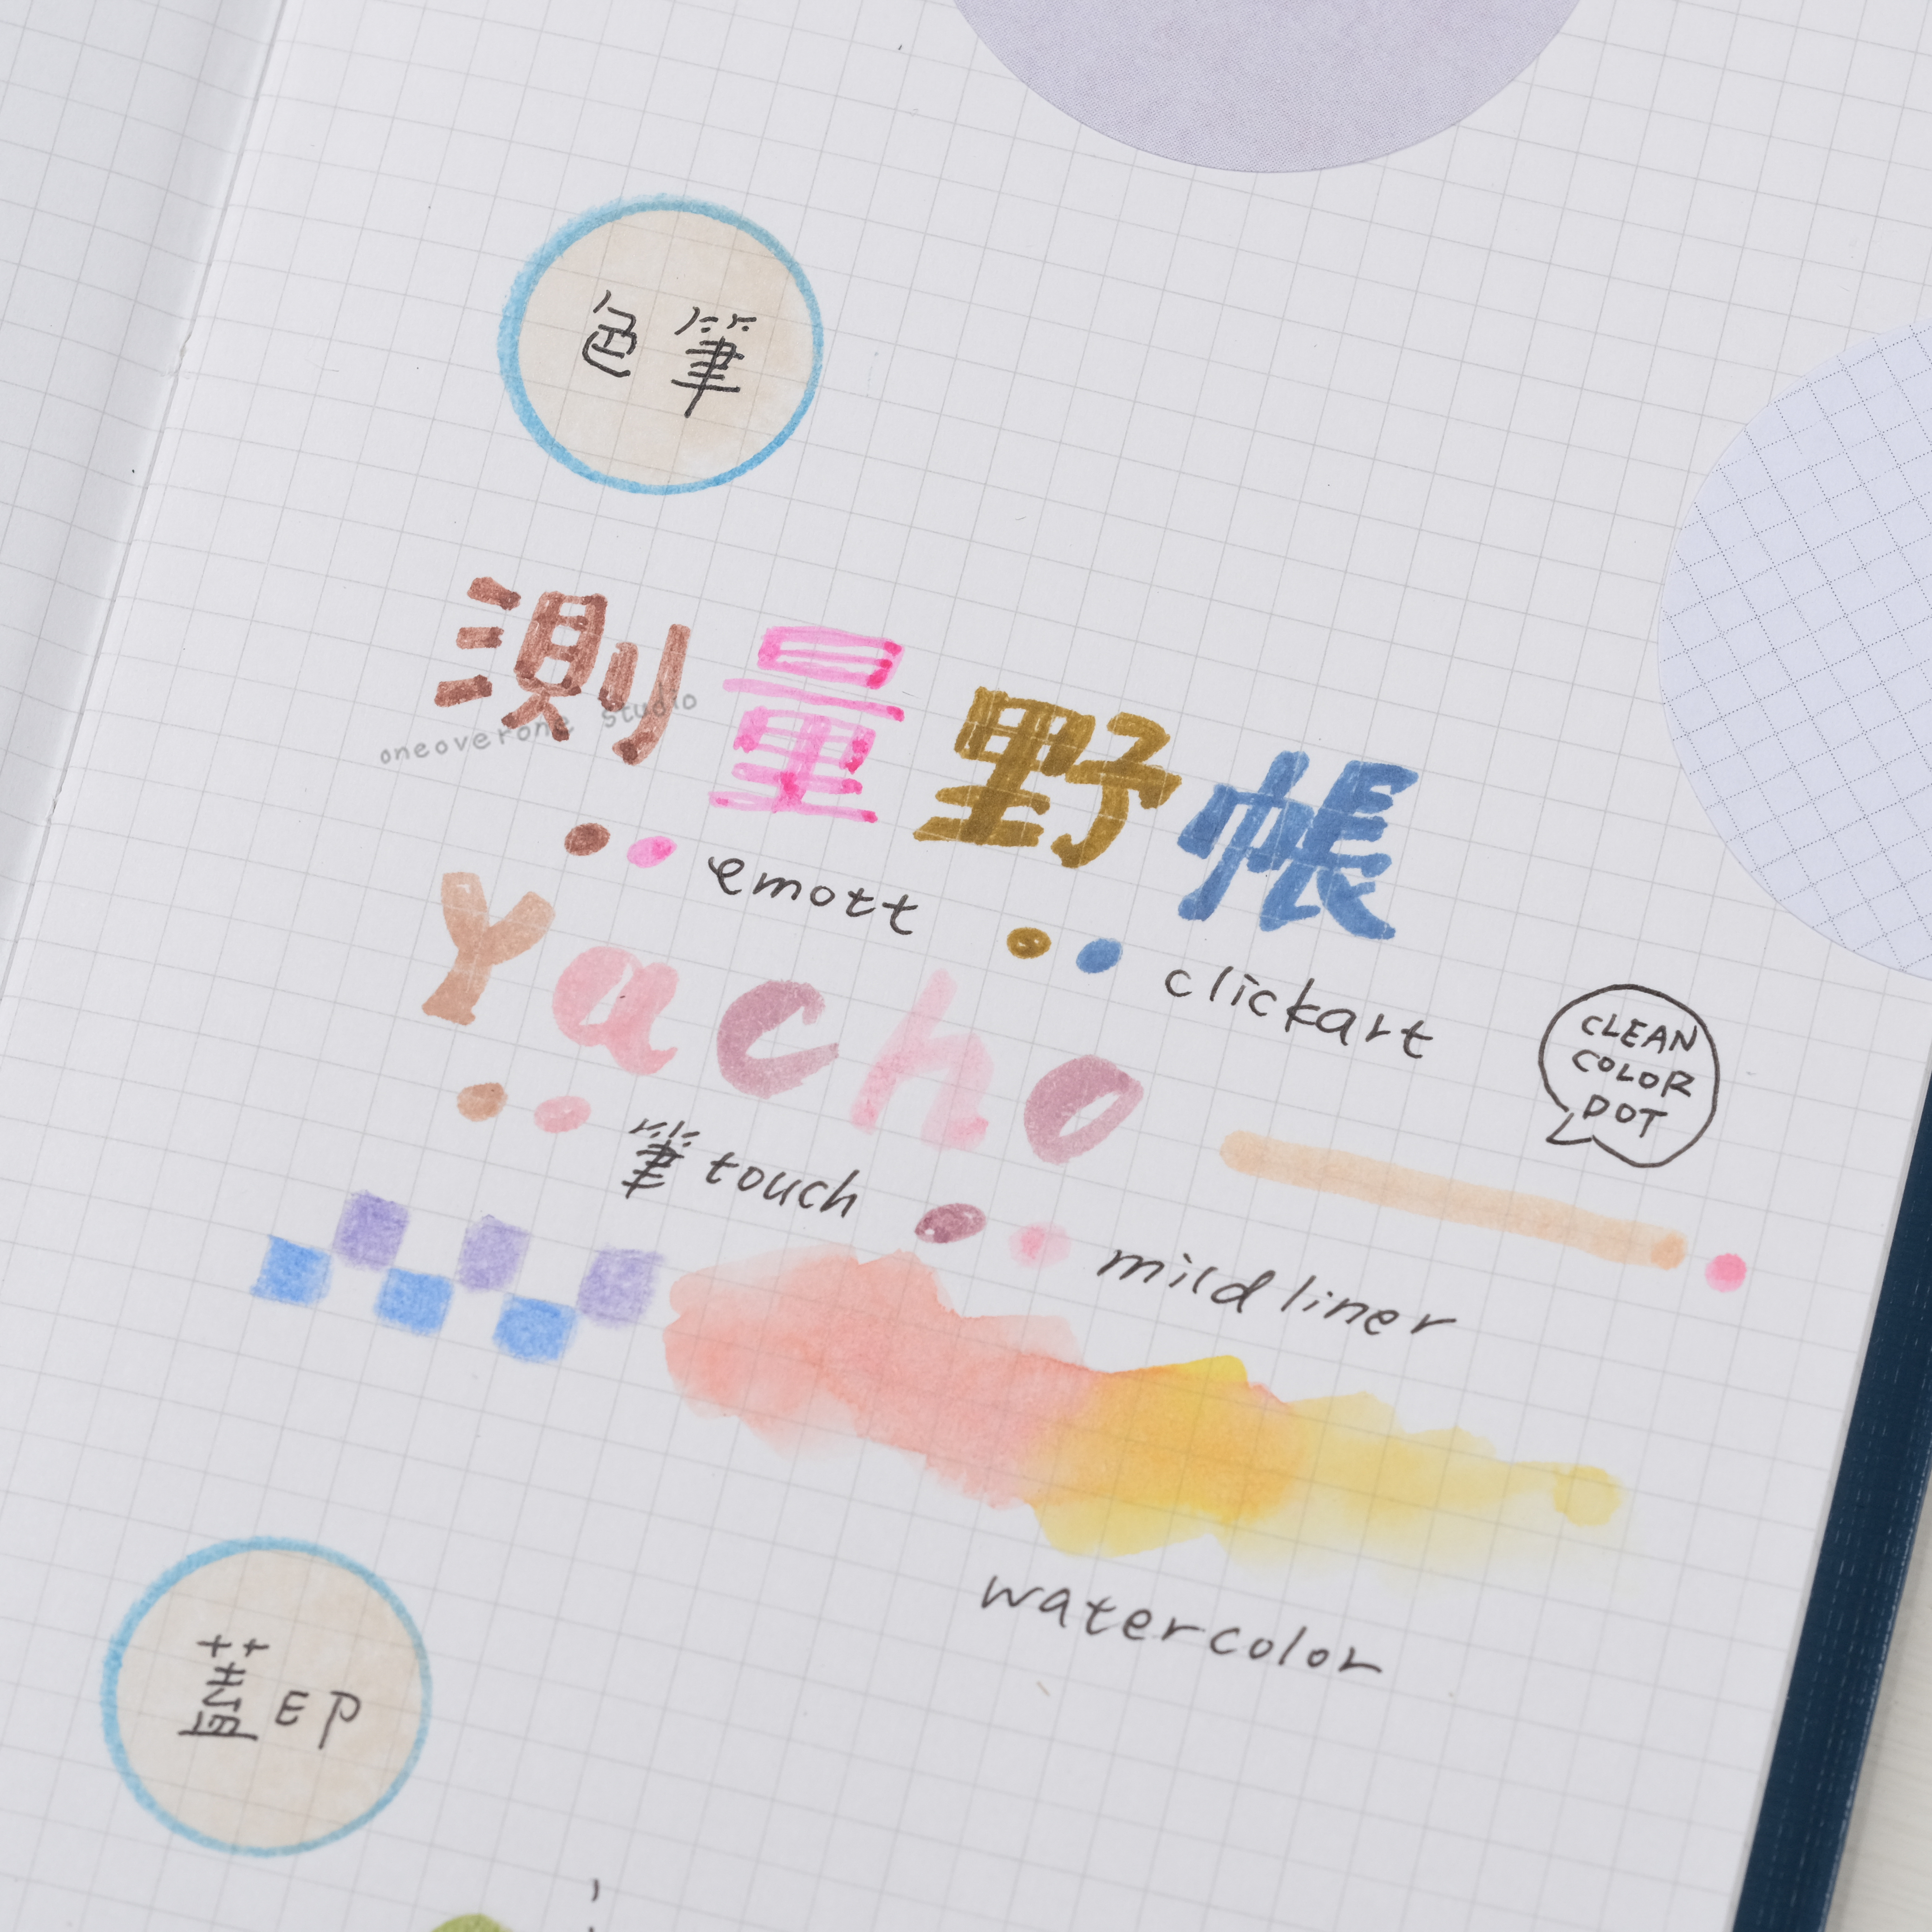 色筆
測量野帳
oneoverone studio
emott
clickart
Yacho
CLEAN
COLOR
DOT
筆touch
mildliner
watercolor
蓋EP